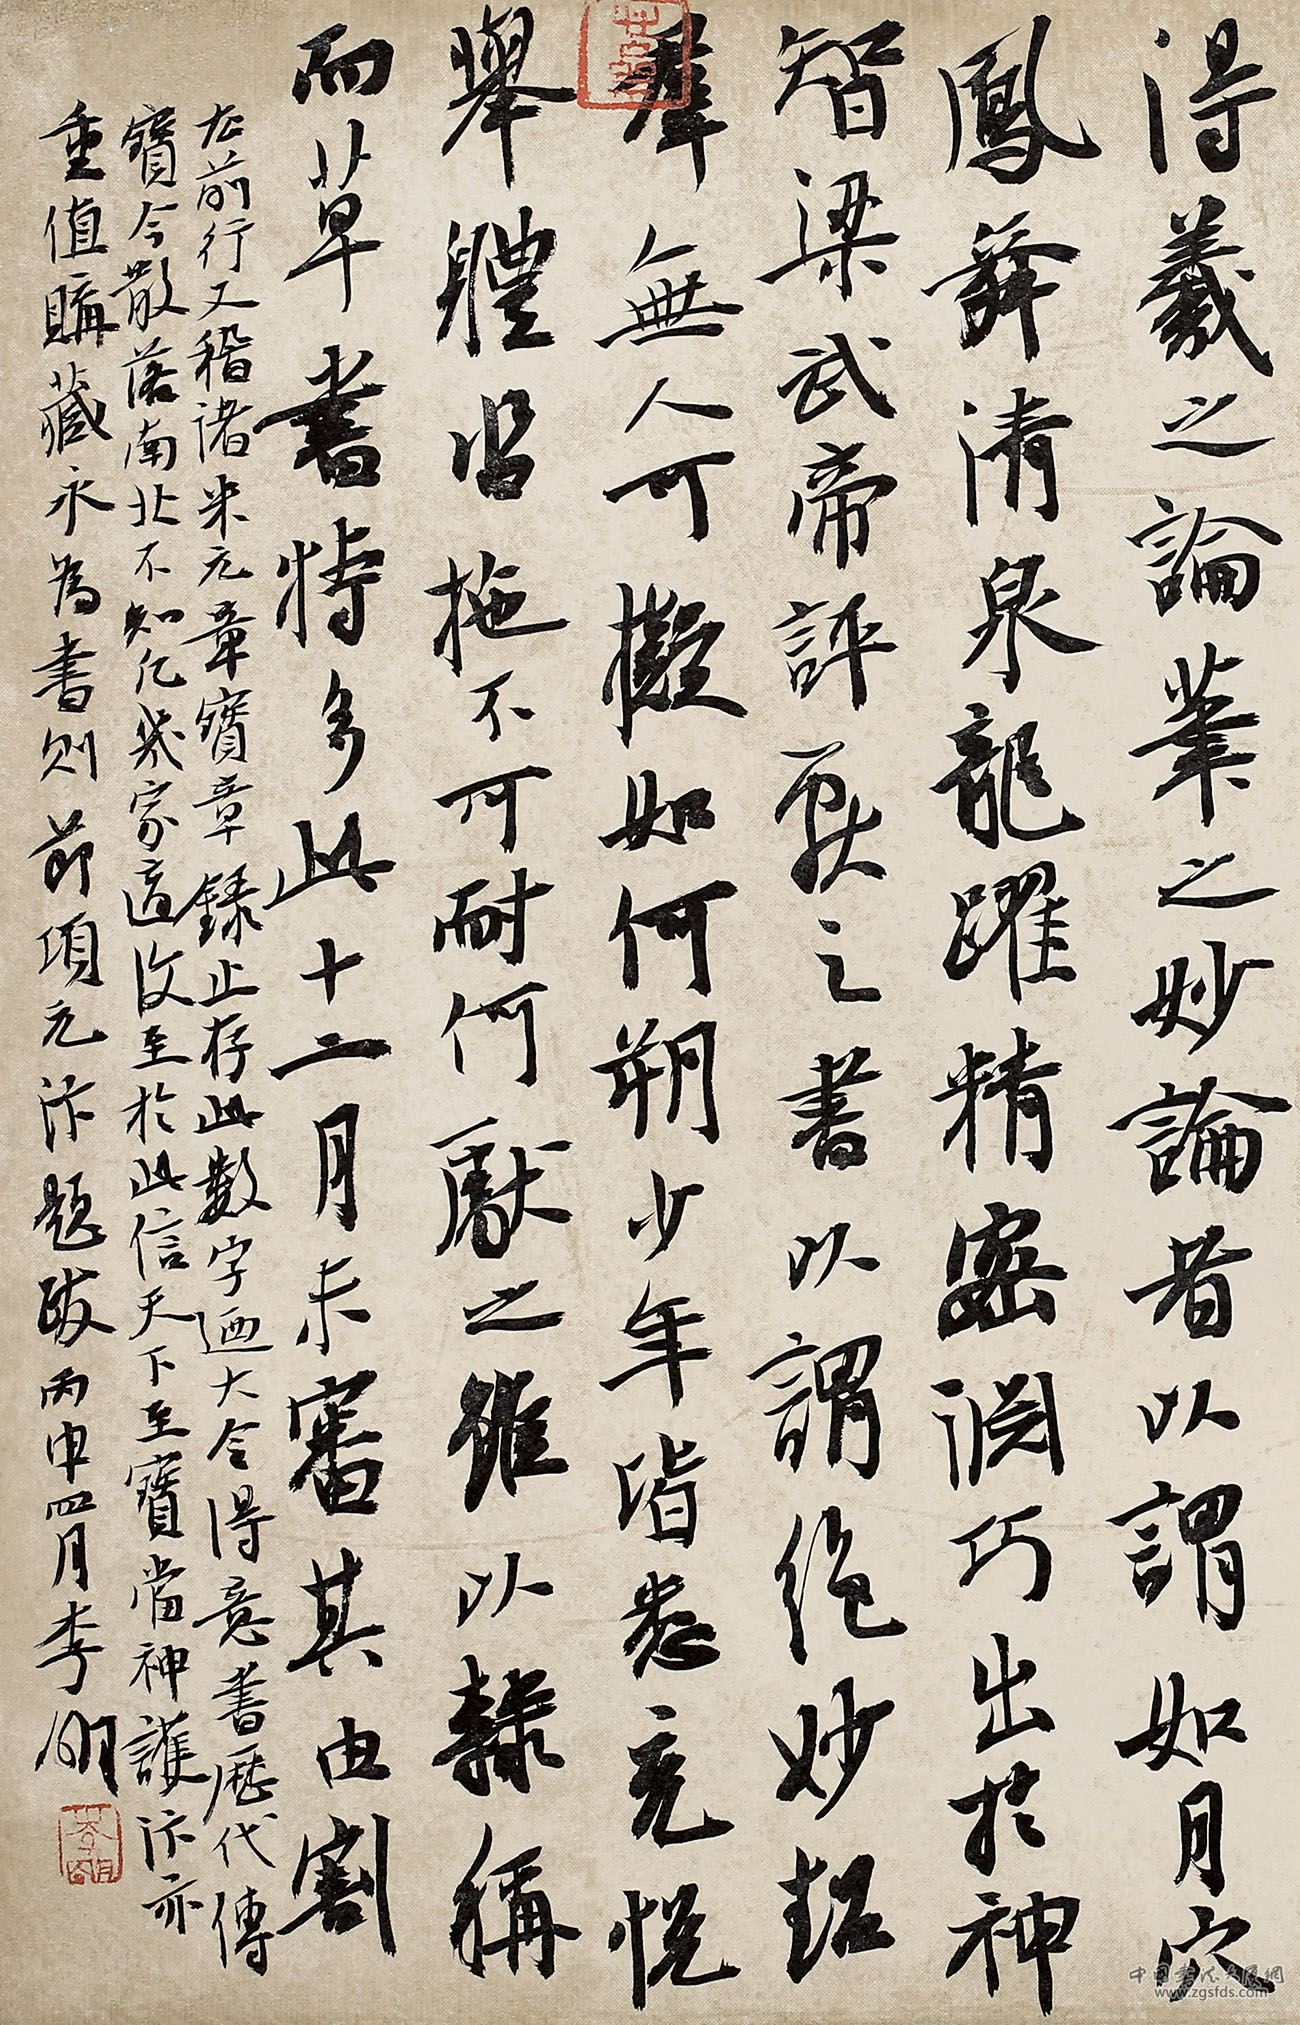 得羲之論筆之妙論者以謂如月穴
鳳舞清泉龍躍精密淵巧出於神
智梁武帝評獻之書以謂絕妙超
羣無人可擬如何朔少年皆悉充悅
舉體沓拖不可耐何獻之雖以隸稱
而草書特多此十二月未審其由割
右前行又稽諸米元章寶章錄止存此數字迺大令得意書歷代傳
寶今散落南北不知凡幾家適汝至於此信天下至寶當神護汴亦
重值購藏永為書則節項元汴題跋丙申四月李明
中国书法大展網
www.zgsfds.com